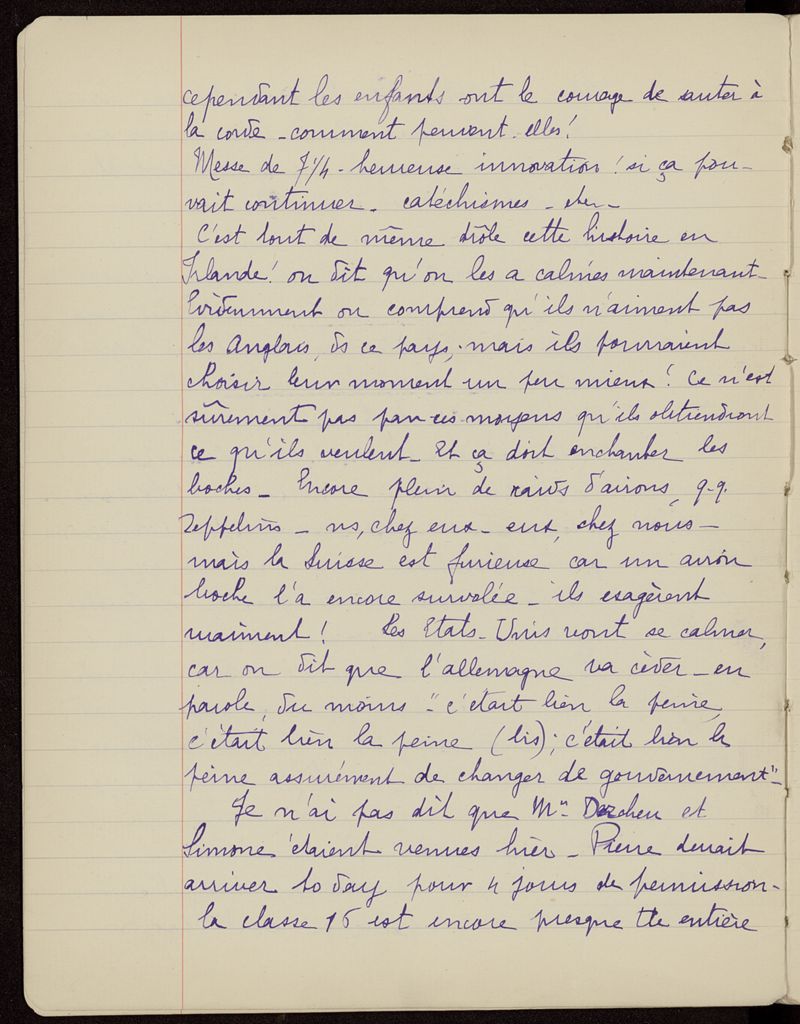 cependant les enfants ont le courage de sauter à
la corde - comment peuvent-elles!
Messe de 7¼ - heureuse innovation! si ça pou-
vait continuer - catéchismes - etc -
C'est tout de même drôle cette histoire en
Irlande! on dit qu'on les a calmés maintenant -
Evidemment on comprend qu'ils n'aiment pas
les Anglais, ds ce pays, mais ils pourraient
choisir leur moment un peu mieux! Ce n'est
sûrement pas par ces moyens qu'ils obtiendront
ce qu'ils veulent - Et ça doit enchanter les
boches - Encore plein de raids d'avions, q.q.
Zeppelins - ns, chez eux - eux, chez nous -
mais la Suisse est furieuse car un avion
boche l'a encore survolée - ils exagèrent
vraiment! Les Etats-Unis vont se calmer,
car on dit que l'allemagne va céder - en
parole, du moins - "c'était bien la peine,
c'était bien la peine (bis); c'était bien la
peine assurément de changer de gouvernement" -
Je n'ai pas dit que Mme et
Simone étaient venues hier - Pierre devait
arriver to day pour 4 jours de permission -
la classe 16 est encore presque tte entière